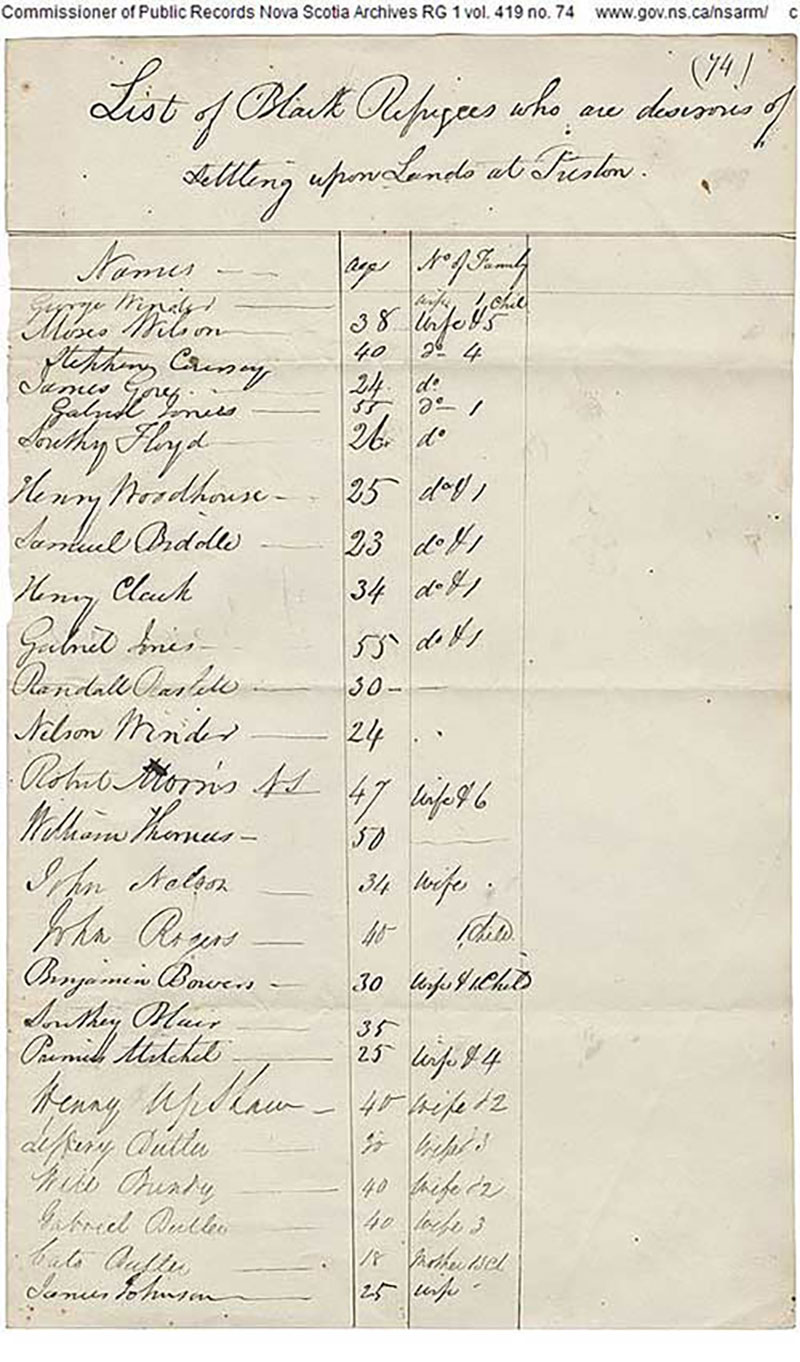 Commissioner of Public Records Nova Scotia Archives RG 1 vol. 419 no. 74 www.gov.ns.ca/nsarm/ c
(74)
List of Black Refugees who are desirous of
settling upon Lands at Preston.
Names — age No of Family
George Winder — wife 1 Chil
Moses Wilson 38 Wife & 5
Stephen 40 do 4
James Gorey 24 do
Gabriel Jones — 55 do — 1
Southy Floyd 26 do
Henry Woodhouse — 25 do & 1
Samuel Biddle — 23 do & 1
Henry Clark 34 do & 1
Gabriel Jones — 55 do & 1
Randall — 30 — —
Nelson Winder — 24
Robert Morris NS 47 Wife & 6
William Thomas — 50 —
John Nelson — 34 Wife
John Rogers — 40 1 Child
Benjamin Bowers — 30 Wife & 1 Child
Southey Blair — 35
Mitchel — 25 Wife & 4
Henry UpShaw — 40 Wife & 2
Jeffery Butler — Wife & 3
Will Bundy — 40 Wife & 2
Gabriel Butler — 40 Wife 3
Cato Butler — 18 Mother
James Johnson — 25 Wife